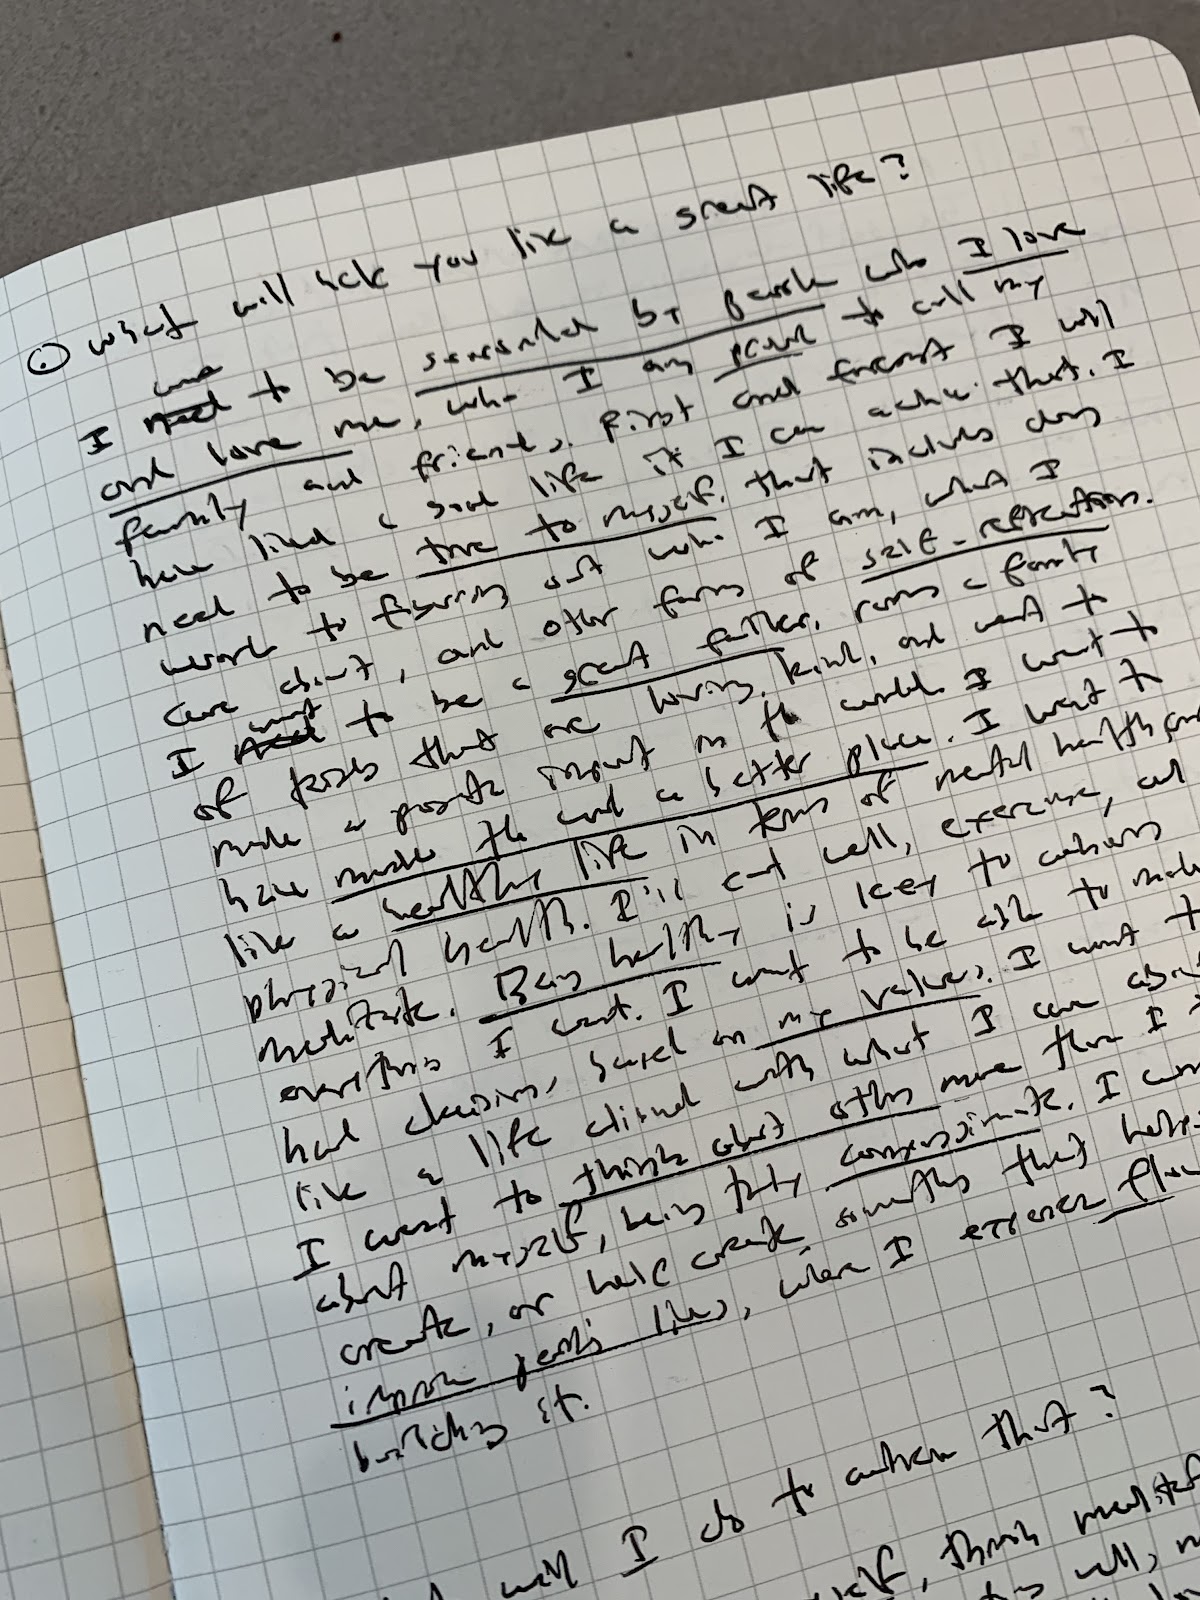 what will look you like a great life?
want
I need to be surrounded by people who I love
and love me, who I am proud to call my
family and friends. First and foremost I will
have lived a good life if I can achieve that. I
need to be true to myself. that includes doing
work to figuring out who I am, what I
care about, and other forms of self-reflection.
want
I need to be a great father, raising a family
of kids that are loving, kind, and want to
make a positive impact in the world. I want to
have made the world a better place. I want to
live a healthy life in terms of mental health and
physical health. I'll eat well, exercise, and
meditate. Being healthy is key to achieving
everything I want. I want to be able to make
hard decisions based on my values. I want to
live a life aligned with what I care about
I want to think about others more than I
about myself, being truly compassionate. I want
create, or help create something that helps
improve people's lives, where I experience flow
building it.
will I do to achieve that?
think
well,